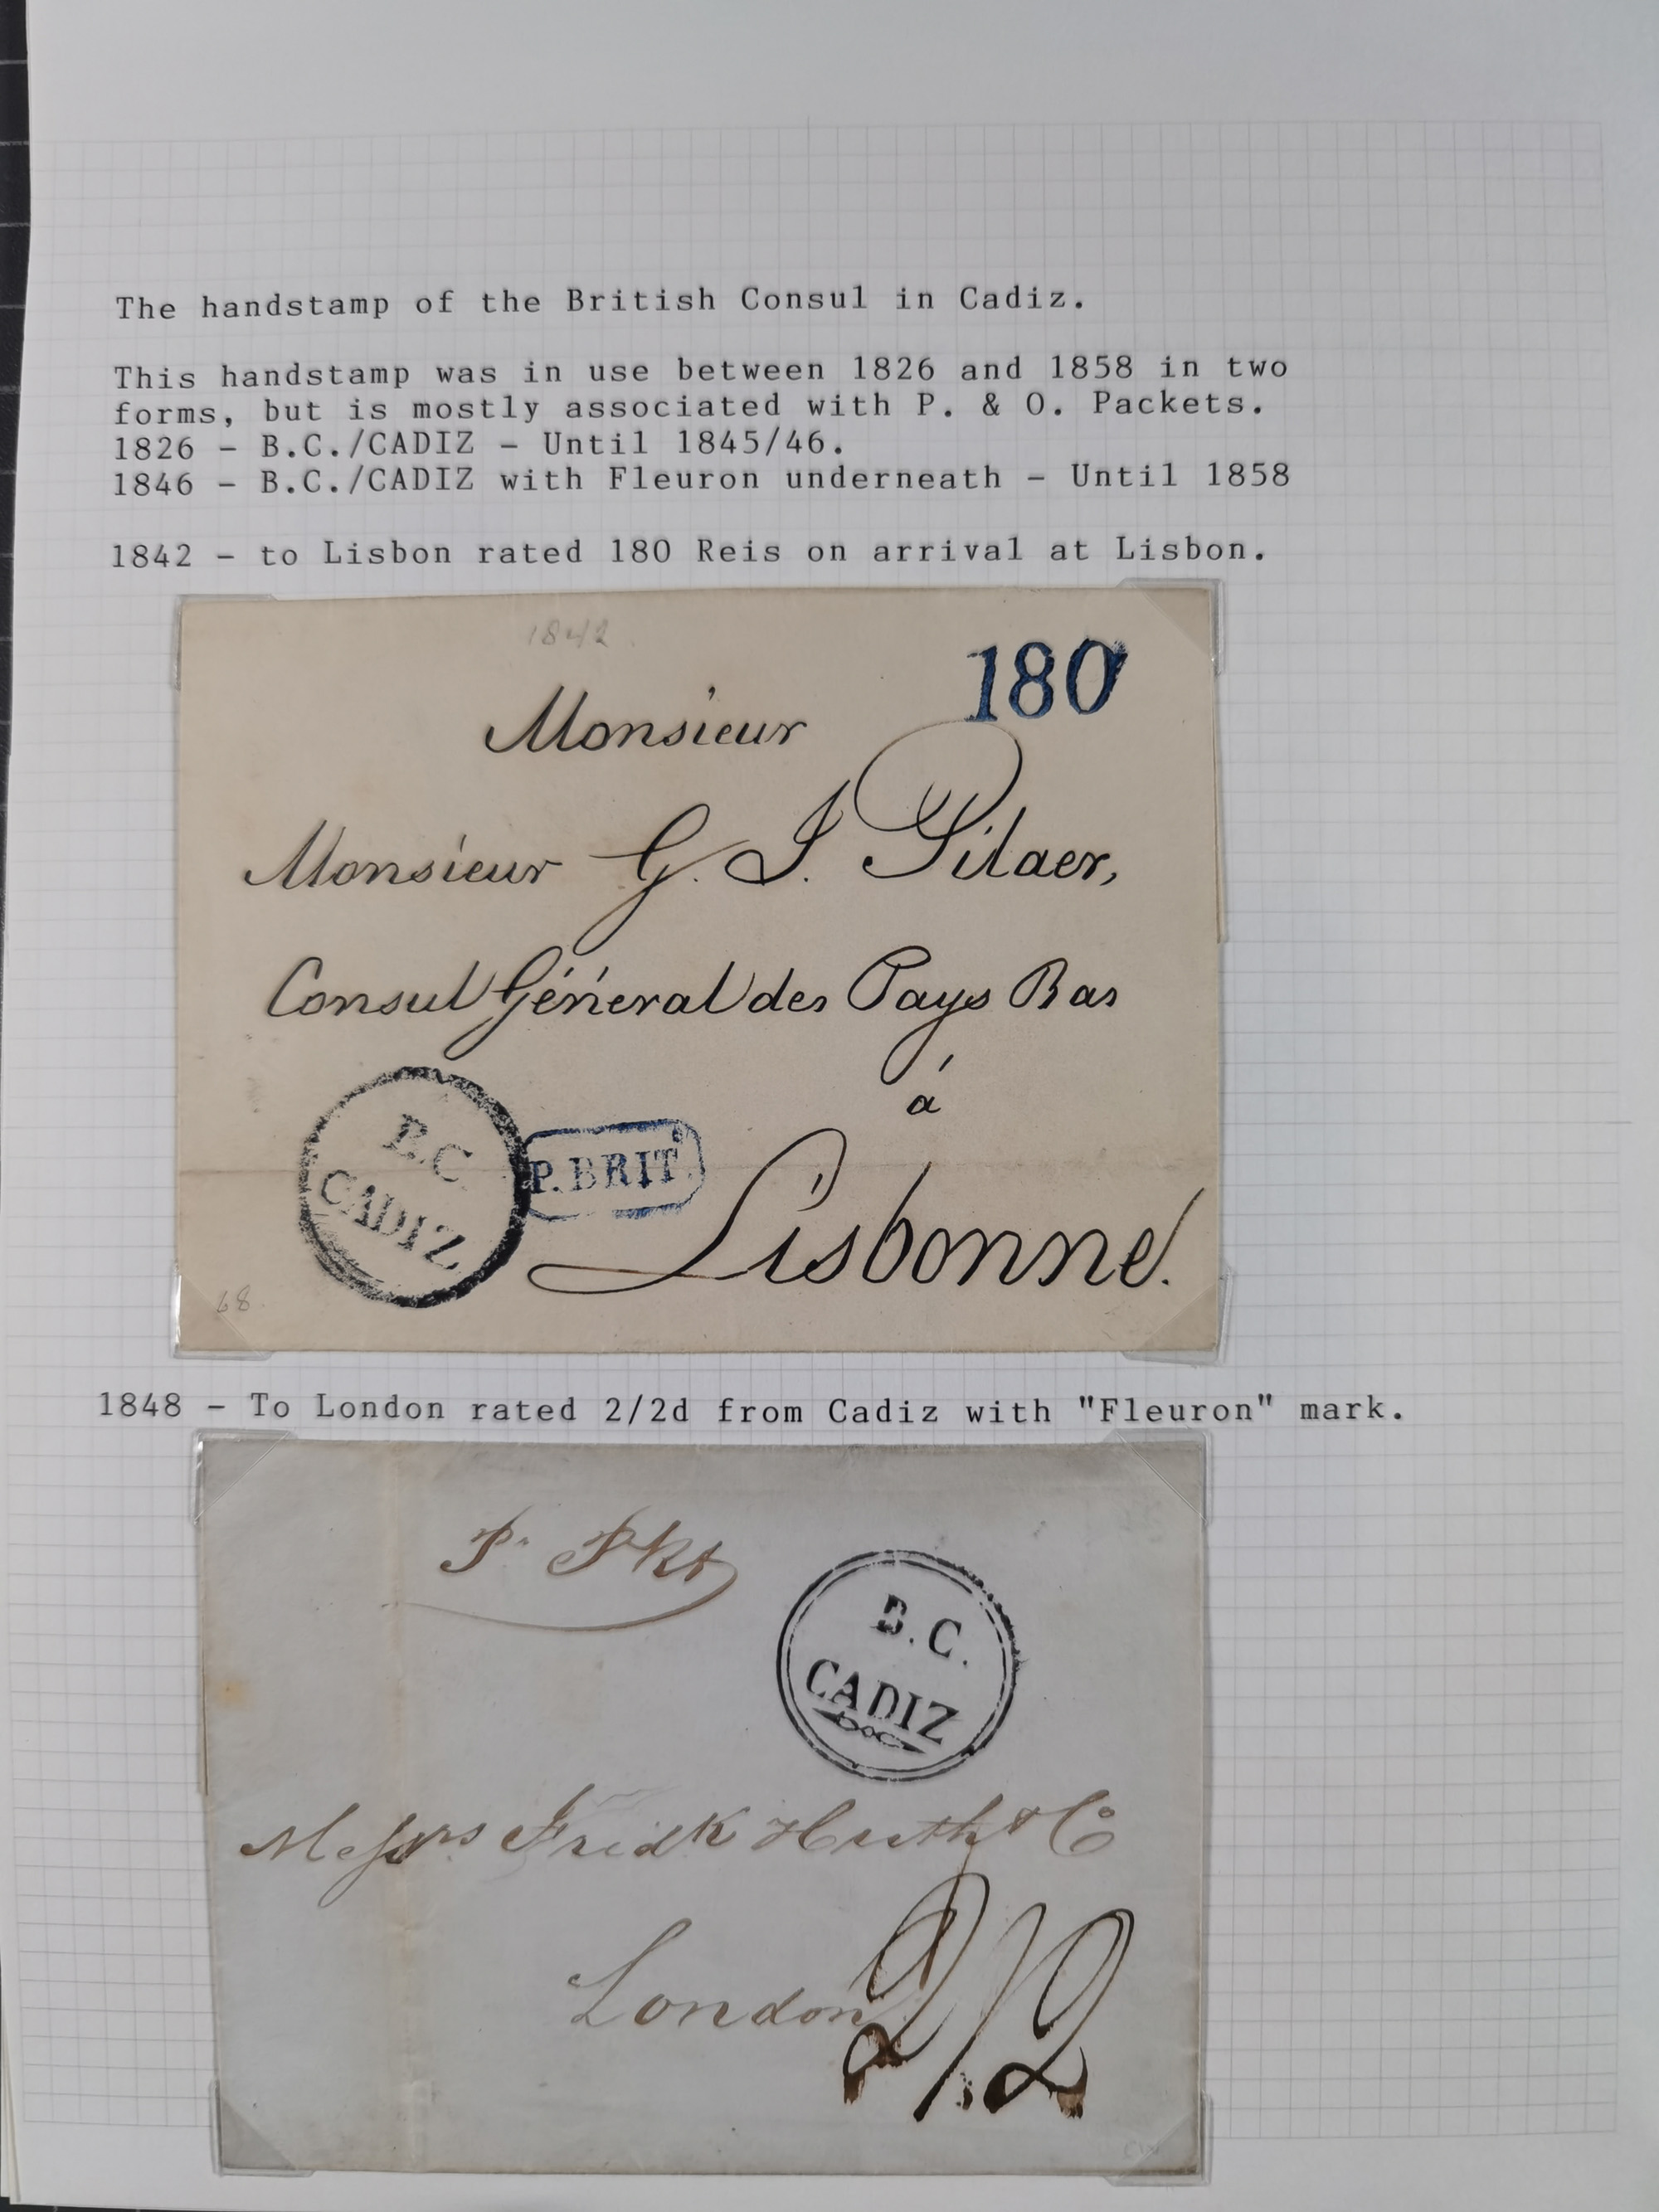 The handstamp of the British Consul in Cadiz.
This handstamp was in use between 1826 and 1858 in two
forms, but is mostly associated with P. & O. Packets.
1826 - B.C./CADIZ - Until 1845/46.
1846 - B.C./CADIZ with Fleuron underneath - Until 1858
1842 - to Lisbon rated 180 Reis on arrival at Lisbon.
1842
180
Monsieur
Monsieur G. J. Pilaer,
Consul Général des Pays Bas
á
B.C
CADIZ
P. BRIT.
Lisbonne.
68
1848 - To London rated 2/2d from Cadiz with "Fleuron" mark.
P. Pkt
B.C.
CADIZ
Messrs Fridk Huth & Co
London
2/2